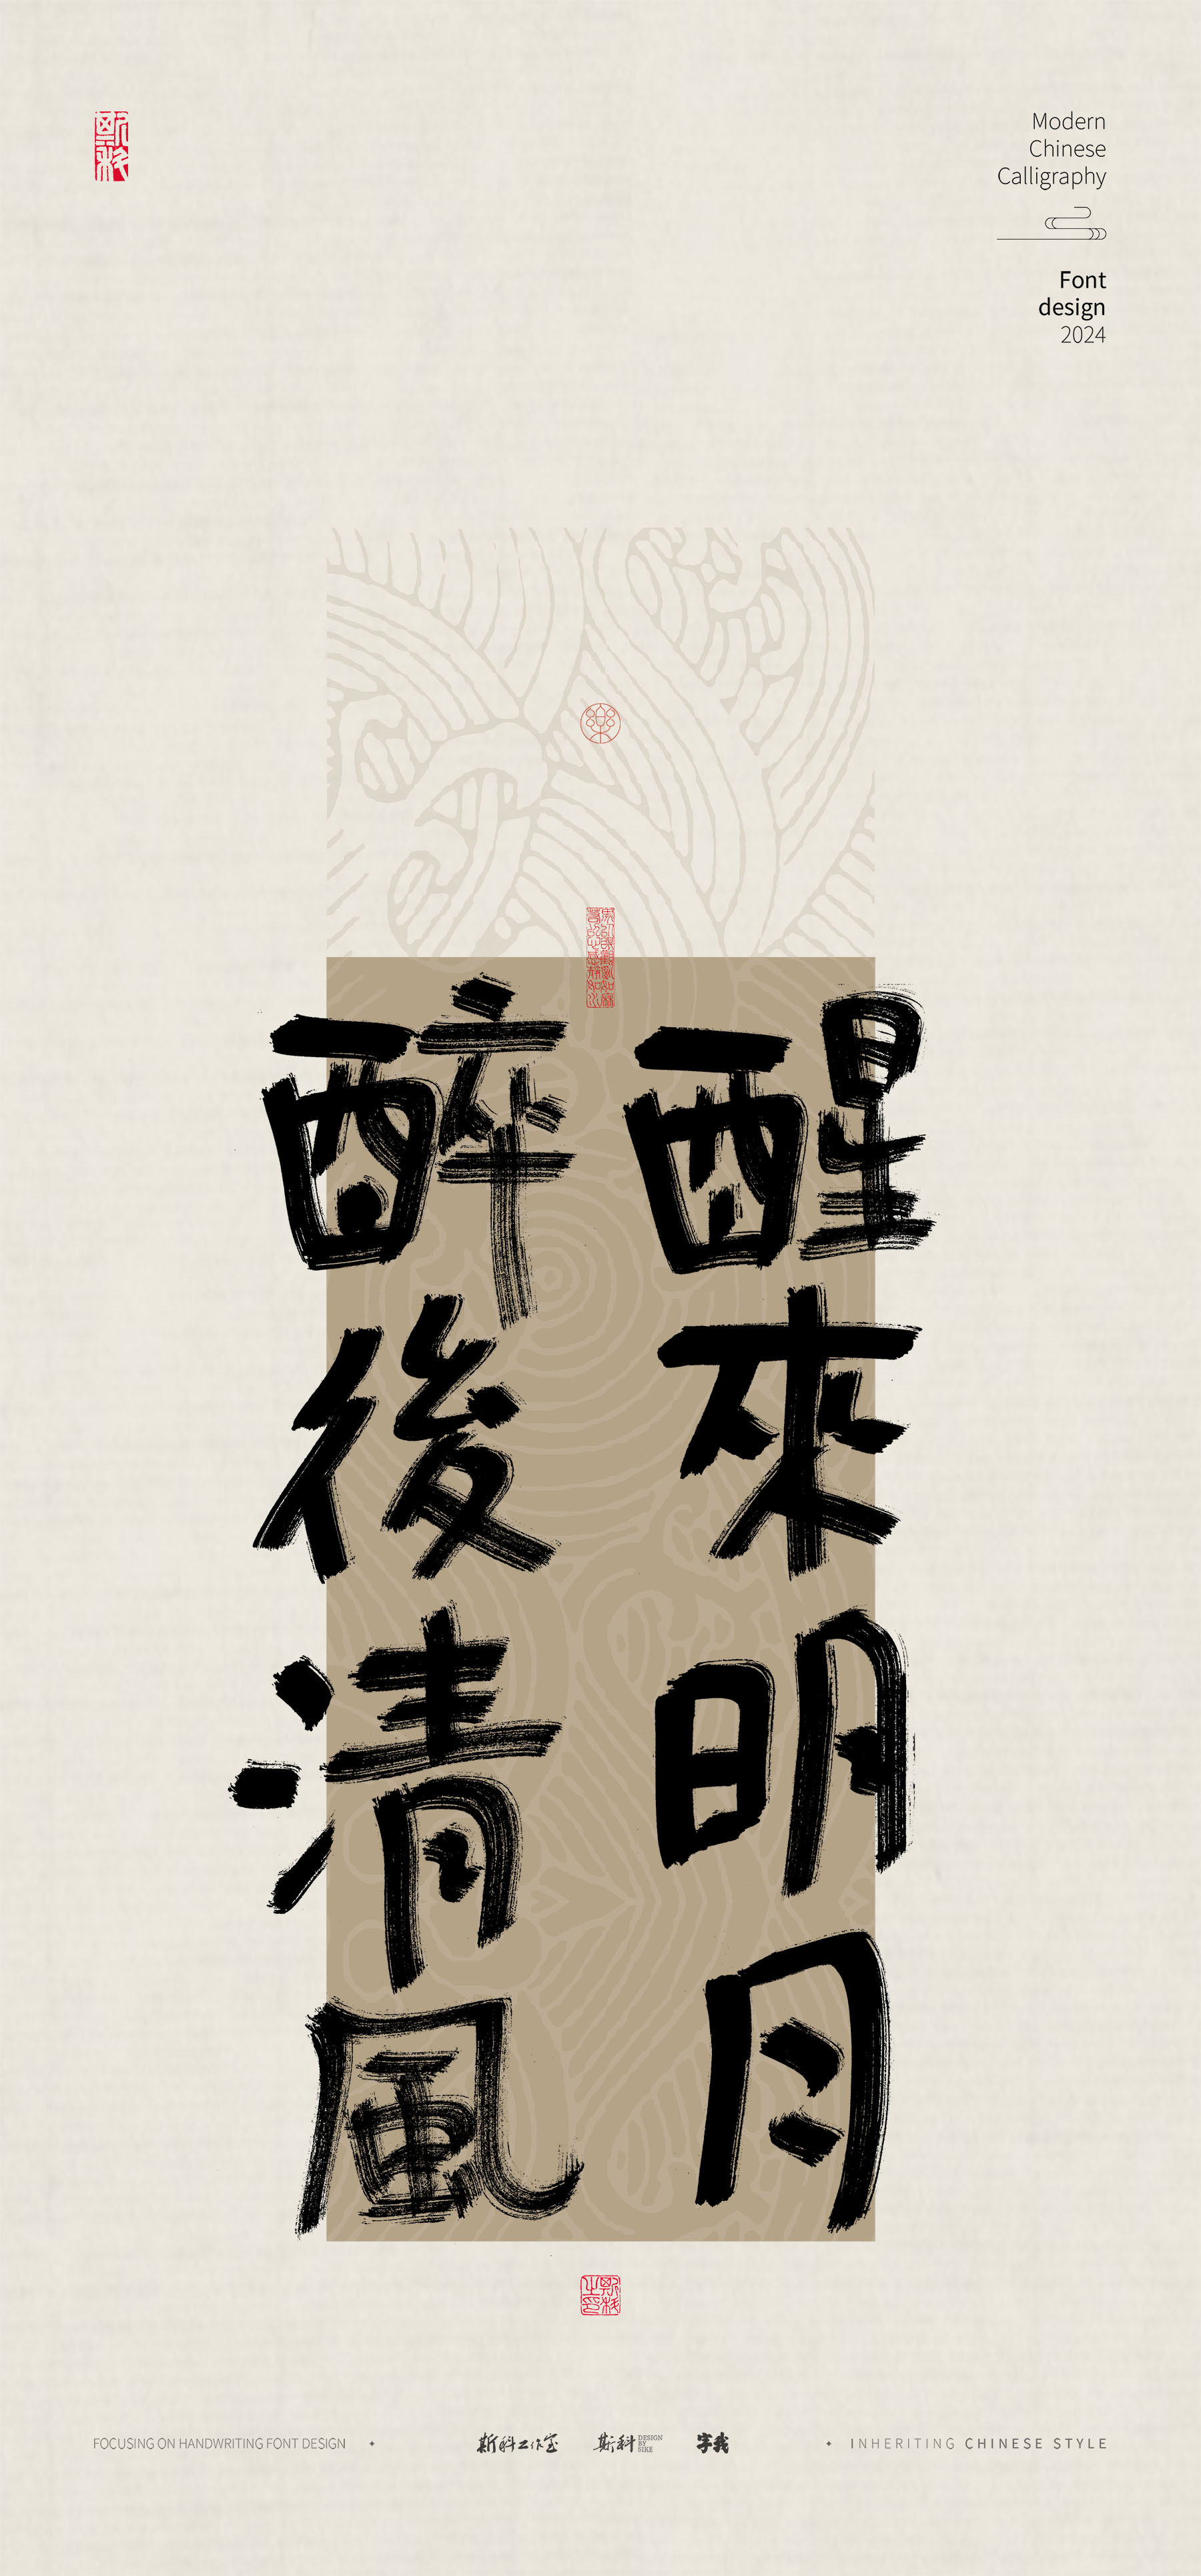 斯科
Modern
Chinese
Calligraphy
Font
design
2024
醒來明月
醉後清風
斯科之印
FOCUSING ON HANDWRITING FONT DESIGN
斯科工作室
斯科
DESIGN
BY
SIKE
字我
INHERITING CHINESE STYLE